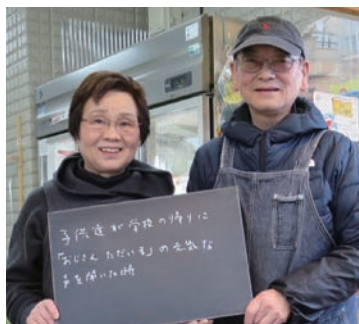 子供達が学校の帰りに
「おじさん ただいま」の元気な
声を聞いた時